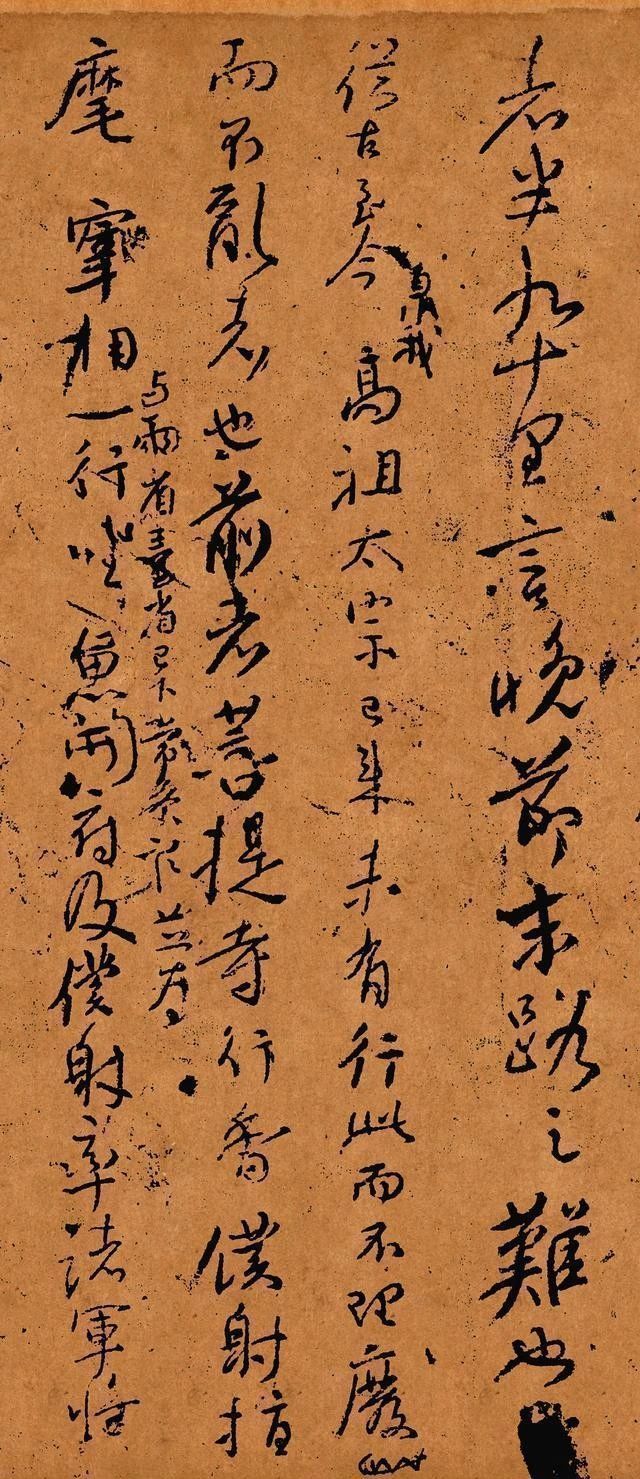 者半九十里言晚節末路之難也
臮我
從古至今高祖太宗已来未有行此而不理廢此
而不亂者也前者菩提寺行香僕射指
與兩省臺省已下常參官並為
麾宰相一行坐魚開府及僕射率諸軍將